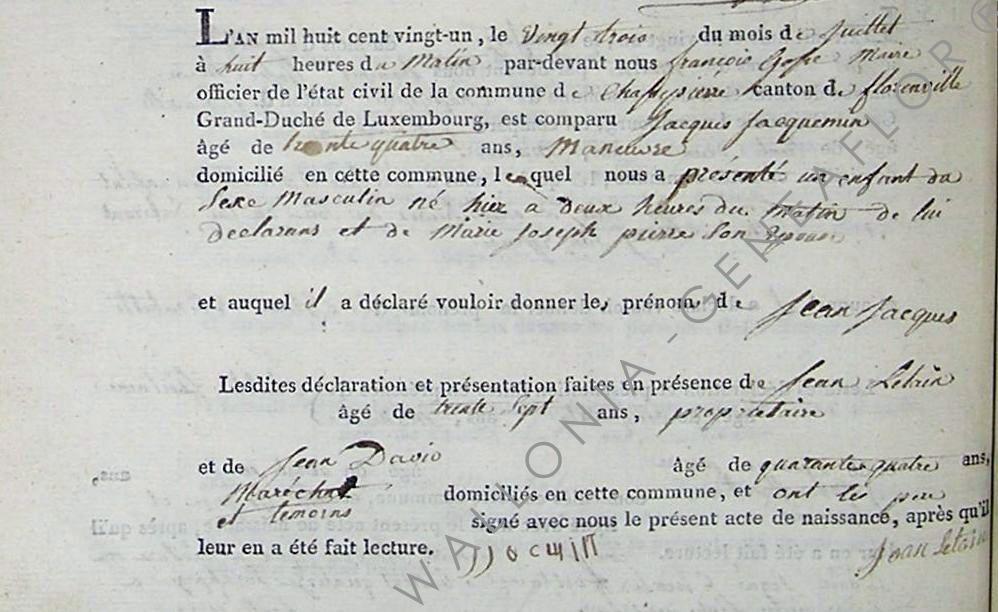 L'AN mil huit cent vingt-un, le Vingt trois du mois de Juillet
à huit heures du Matin par-devant nous françois Maire
officier de l'état civil de la commune de Chassepierre canton de florenville
Grand-Duché de Luxembourg, est comparu Jacques Jacquemin
âgé de trente quatre ans, Maneuvre
domicilié en cette commune, lequel nous a présenté un enfant du
Sexe Masculin né hier a deux heures du matin de lui
declarans et de Marie Joseph pierre Son Epouse
et auquel il a déclaré vouloir donner les prénoms de Jean Jacques
Lesdites déclaration et présentation faites en présence de Jean Letain
âgé de trente Sept ans, propriétaire
et de Jean David âgé de quarante quatre ans,
Maréchal domiciliés en cette commune, et ont les
et temoins signé avec nous le présent acte de naissance, après qu'il
leur en a été fait lecture. Jean Letain
WALLONIA-GENEAFLOR ®